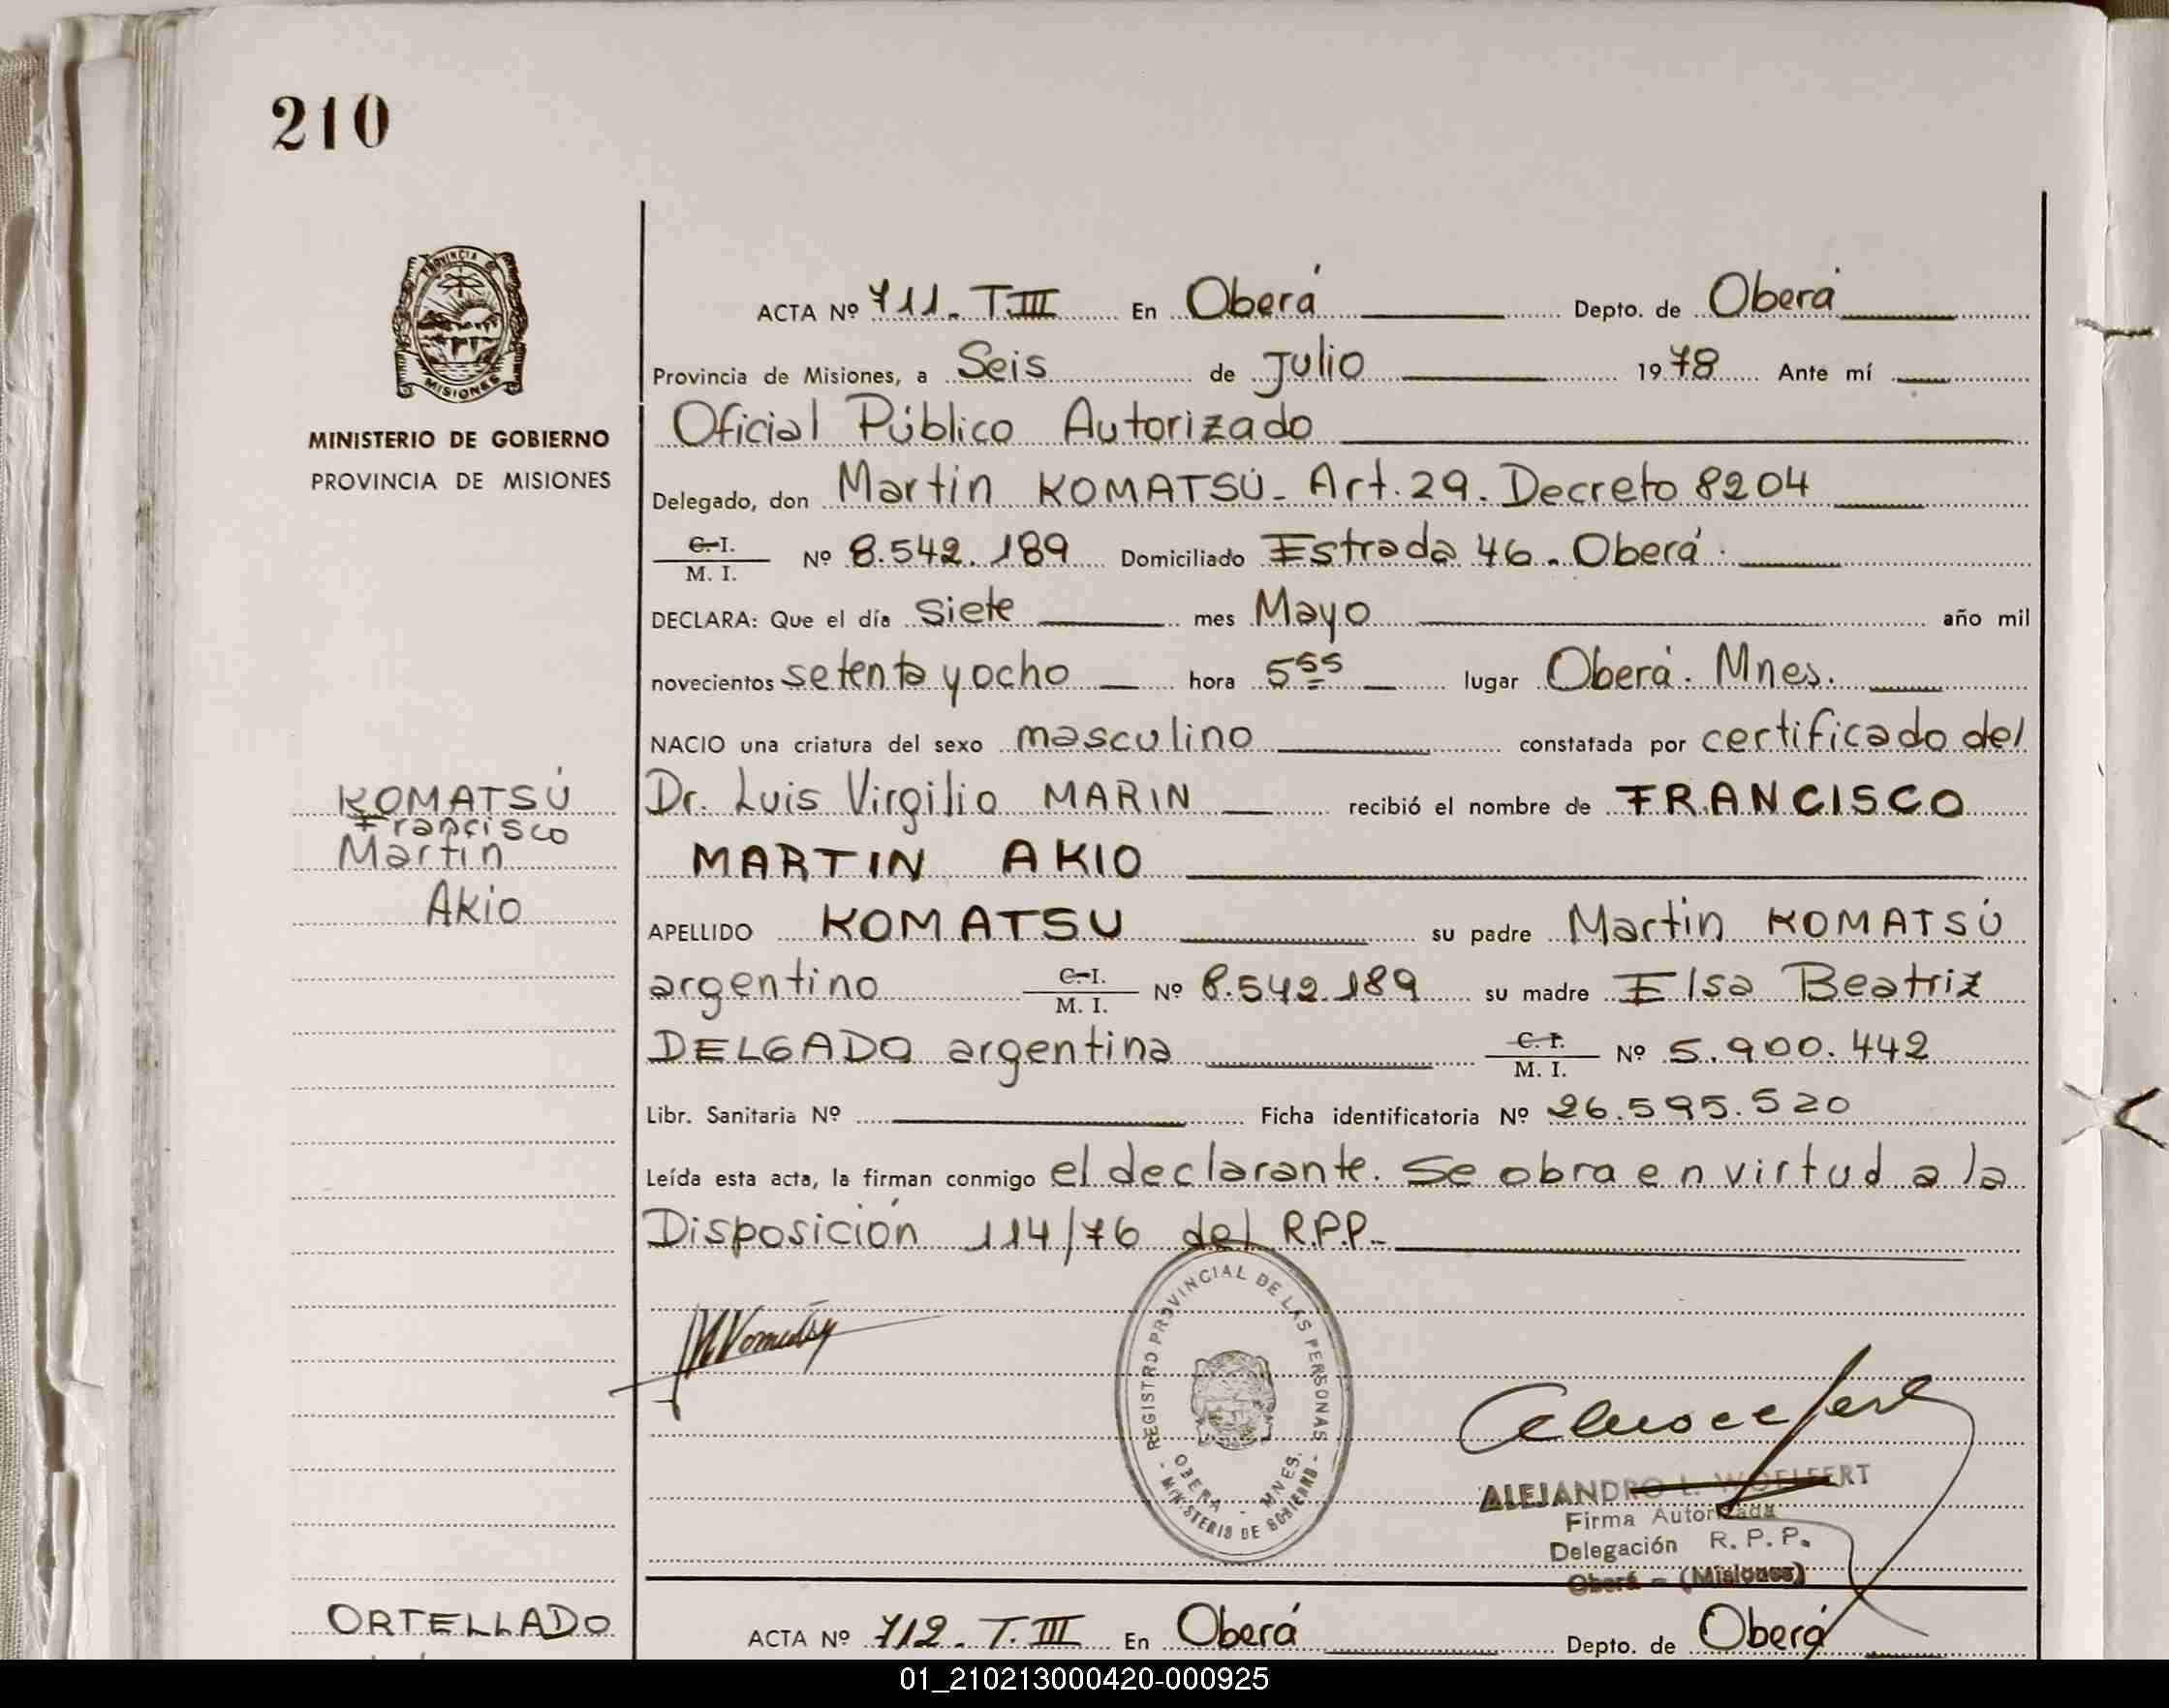 210
PROVINCIA DE
MISIONES
MINISTERIO DE GOBIERNO
PROVINCIA DE MISIONES
ACTA Nº 711. T.III En Oberá Depto. de Oberá
Provincia de Misiones, a Seis de Julio 1978 Ante mí
Oficial Público Autorizado
Delegado, don Martin KOMATSÚ. Art. 29. Decreto 8204
C. I.
M. I. Nº 8.542.189 Domiciliado Estrada 46. Oberá.
DECLARA: Que el día siete mes Mayo año mil
novecientos setenta y ocho hora 5 55 lugar Oberá. Mnes.
NACIO una criatura del sexo masculino constatada por certificado del
Dr. Luis Virgilio MARIN recibió el nombre de FRANCISCO
MARTIN AKIO
KOMATSÚ
Francisco
Martin
Akio
APELLIDO KOMATSU su padre Martin KOMATSÚ
argentino C. I.
M. I. Nº 8.542.189 su madre Elsa Beatriz
DELGADO argentina C. I.
M. I. Nº 5.900.442
Libr. Sanitaria Nº Ficha identificatoria Nº 26.595.520
Leída esta acta, la firman conmigo el declarante. Se obra en virtud a la
Disposición 114/76 del R.P.P.
- REGISTRO PROVINCIAL DE LAS PERSONAS -
OBERA - MNES.
MINISTERIO DE GOBIERNO
ALEJANDRO L. WOELFERT
Firma Autorizada
Delegación R. P. P.
Oberá - (Misiones)
ORTELLADO
ACTA Nº 712. T. III En Oberá Depto. de Oberá
01_210213000420-000925